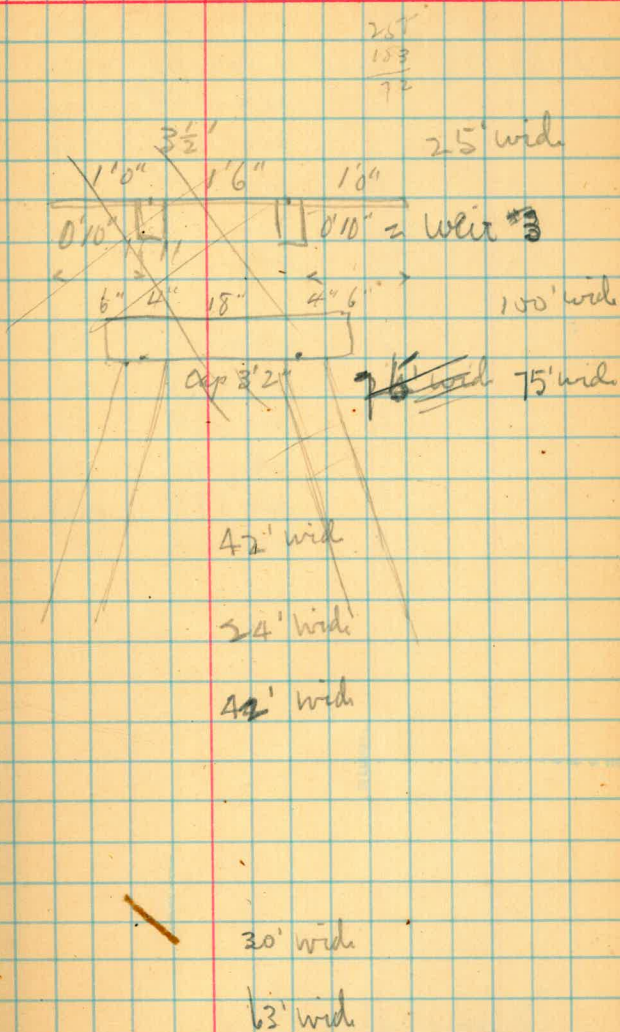 255
183
72
3½'
25' wide
1'0" 1'6" 1'0"
0'10" 0'10" = Weir #3
6" 4" 18" 4" 6"
100' wide
Cap 3'2" 75' wide
42' wide
24' wide
42' wide
30' wide
63' wide